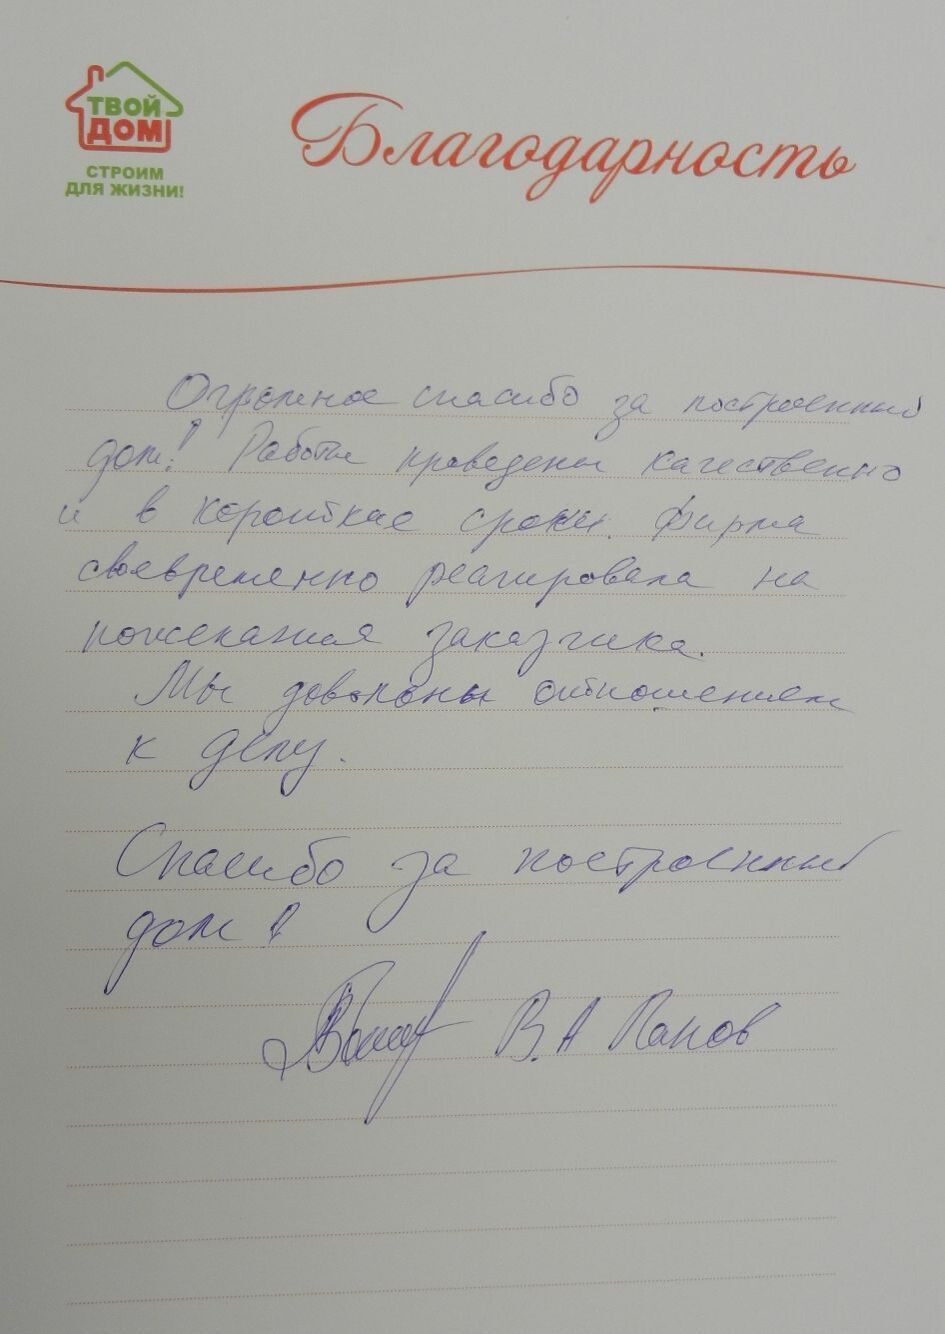 ТВОЙ
ДОМ
СТРОИМ
ДЛЯ ЖИЗНИ!
Благодарность
Огромное спасибо за построенный
дом! Работы проведены качественно
и в короткие сроки. Фирма
своевременно реагировала на
пожелания заказчика.
Мы довольны отношением
к делу.
Спасибо за построенный
дом!
В.А Панов